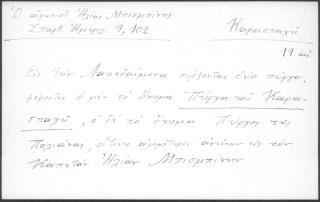 Ὁ ἀγωνιστὴς Ἠλίας Μπισμπίνης
Σπαρτ. Ἡμερολ. 9, 102
Καρασπαχῆ
19 αἰ
Εἰς τὴν Λακεδαίμονα σῴζονται δύο πύργοι,
φέρονται ὁ μὲν τὸ ὄνομα Πύργος τοῦ Καρα-
σπαχῆ, ὁ δὲ τὸ ὄνομα Πύργος τῆς
Πολιάνας, οἵτινες ἀμφότεροι ἀνῆκον εἰς τὸν
Καπετὰν Ἠλίαν Μπισμπίνην